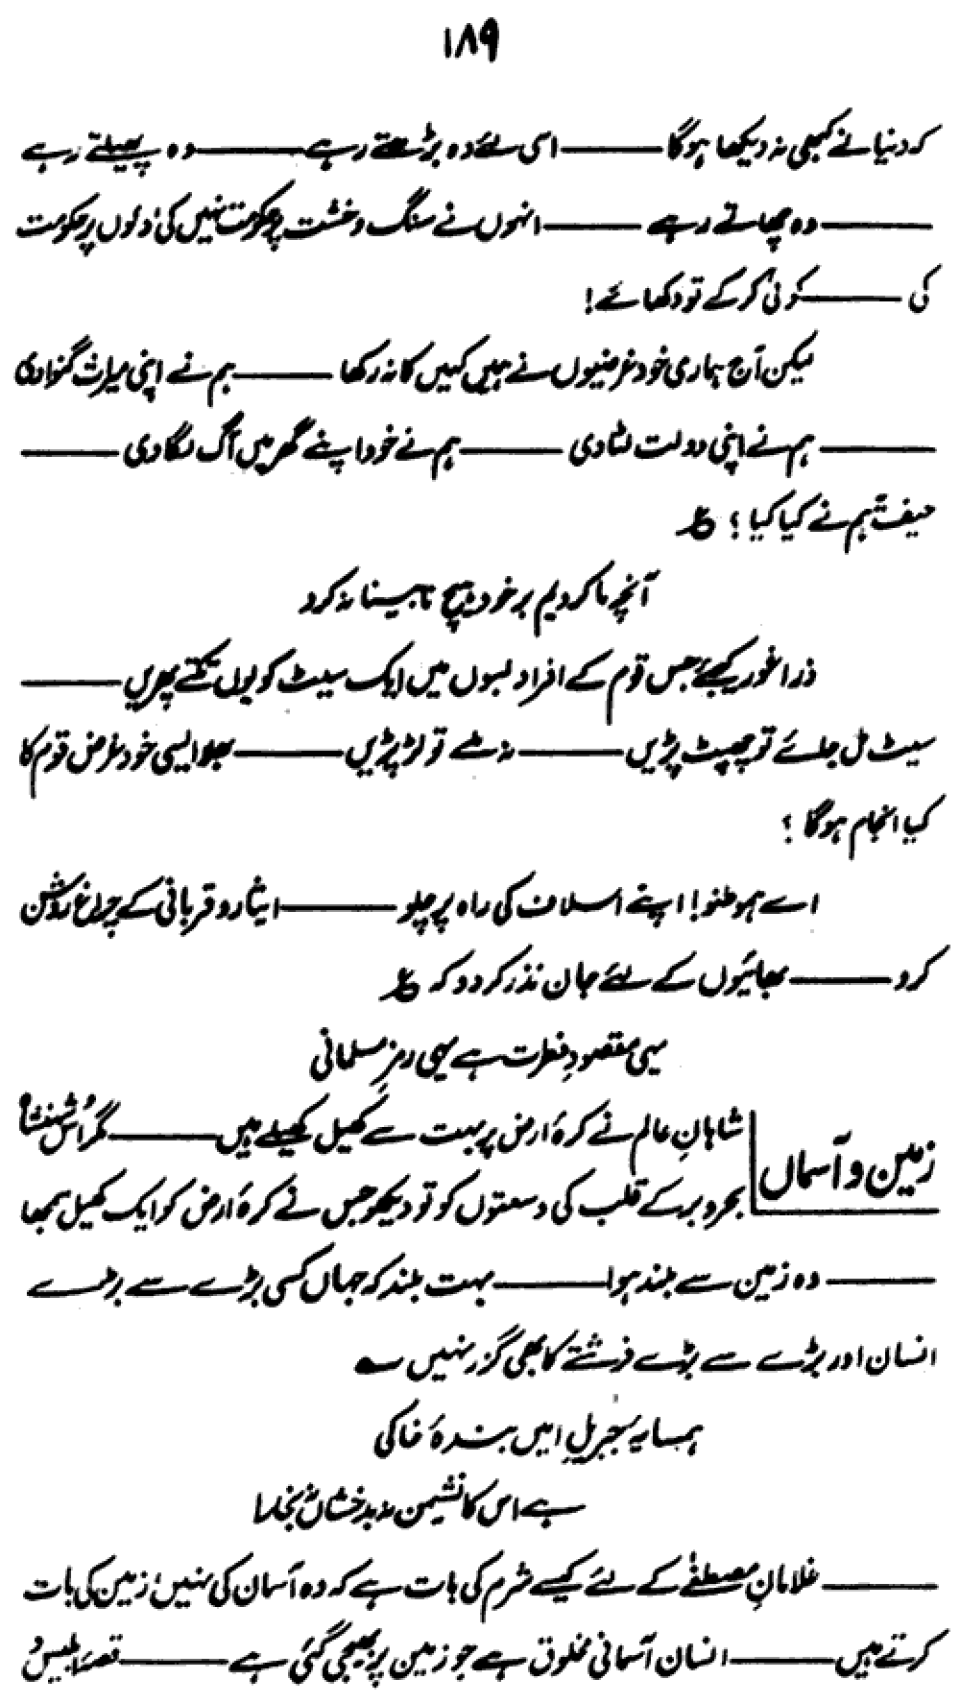 ۱۸۹
کہ دنیا نے کبھی نہ دیکھا ہوگا ——— اسی لئے وہ بڑھتے رہے ——— وہ پھیلتے رہے
——— وہ چھاتے رہے ——— انہوں نے سنگ و خشت پر حکومت نہیں کی، دلوں پر حکومت
کی ——— کوئی کر کے تو دکھائے!
لیکن آج ہماری خود غرضیوں نے ہمیں کہیں کا نہ رکھا ——— ہم نے اپنی میراث گنوا دی
——— ہم نے اپنی دولت لٹا دی ——— ہم نے خود اپنے گھر میں آگ لگا دی ———
حیف ہم نے کیا کیا؟ ع
آنچہ ما کردیم بر خود ہیچ نابینا نہ کرد
ذرا غور کیجئے جس قوم کے افراد بسوں میں ایک سیٹ کو یوں تکتے پھریں ———
سیٹ مل جائے تو جھپٹ پڑیں ——— نہ ملے تو لڑ پڑیں ——— بھلا ایسی خود غرض قوم کا
کیا انجام ہوگا؟
اے ہموطنو! اپنے اسلاف کی راہ پر چلو ——— ایثار و قربانی کے چراغ روشن
کرو ——— بھائیوں کے لئے جان نذر کر دو کہ ع
یہی مقصودِ فطرت ہے یہی رمزِ مسلمانی
زمین و آسماں
شاہانِ عالم نے کرۂ ارض پر بہت سے کھیل کھیلے ہیں ——— مگر اُس شہنشاہ
بحر و بر کے قلب کی وسعتوں کو تو دیکھو جس نے کرۂ ارض کو ایک کھیل سمجھا
——— وہ زمین سے بلند ہوا ——— بہت بلند کہ جہاں کسی بڑے سے بڑے
انسان اور بڑے سے بڑے فرشتے کا بھی گزر نہیں ؎
ہمسایۂ جبریلِ امیں بندۂ خاکی
ہے اس کا نشیمن نہ بدخشاں نہ بخارا
——— غلامانِ مصطفےٰ کے لئے کیسے شرم کی بات ہے کہ وہ آسمان کی نہیں، زمین کی بات
کرتے ہیں ——— انسان آسمانی مخلوق ہے جو زمین پر بھیجی گئی ہے ——— قصۂ ابلیس و